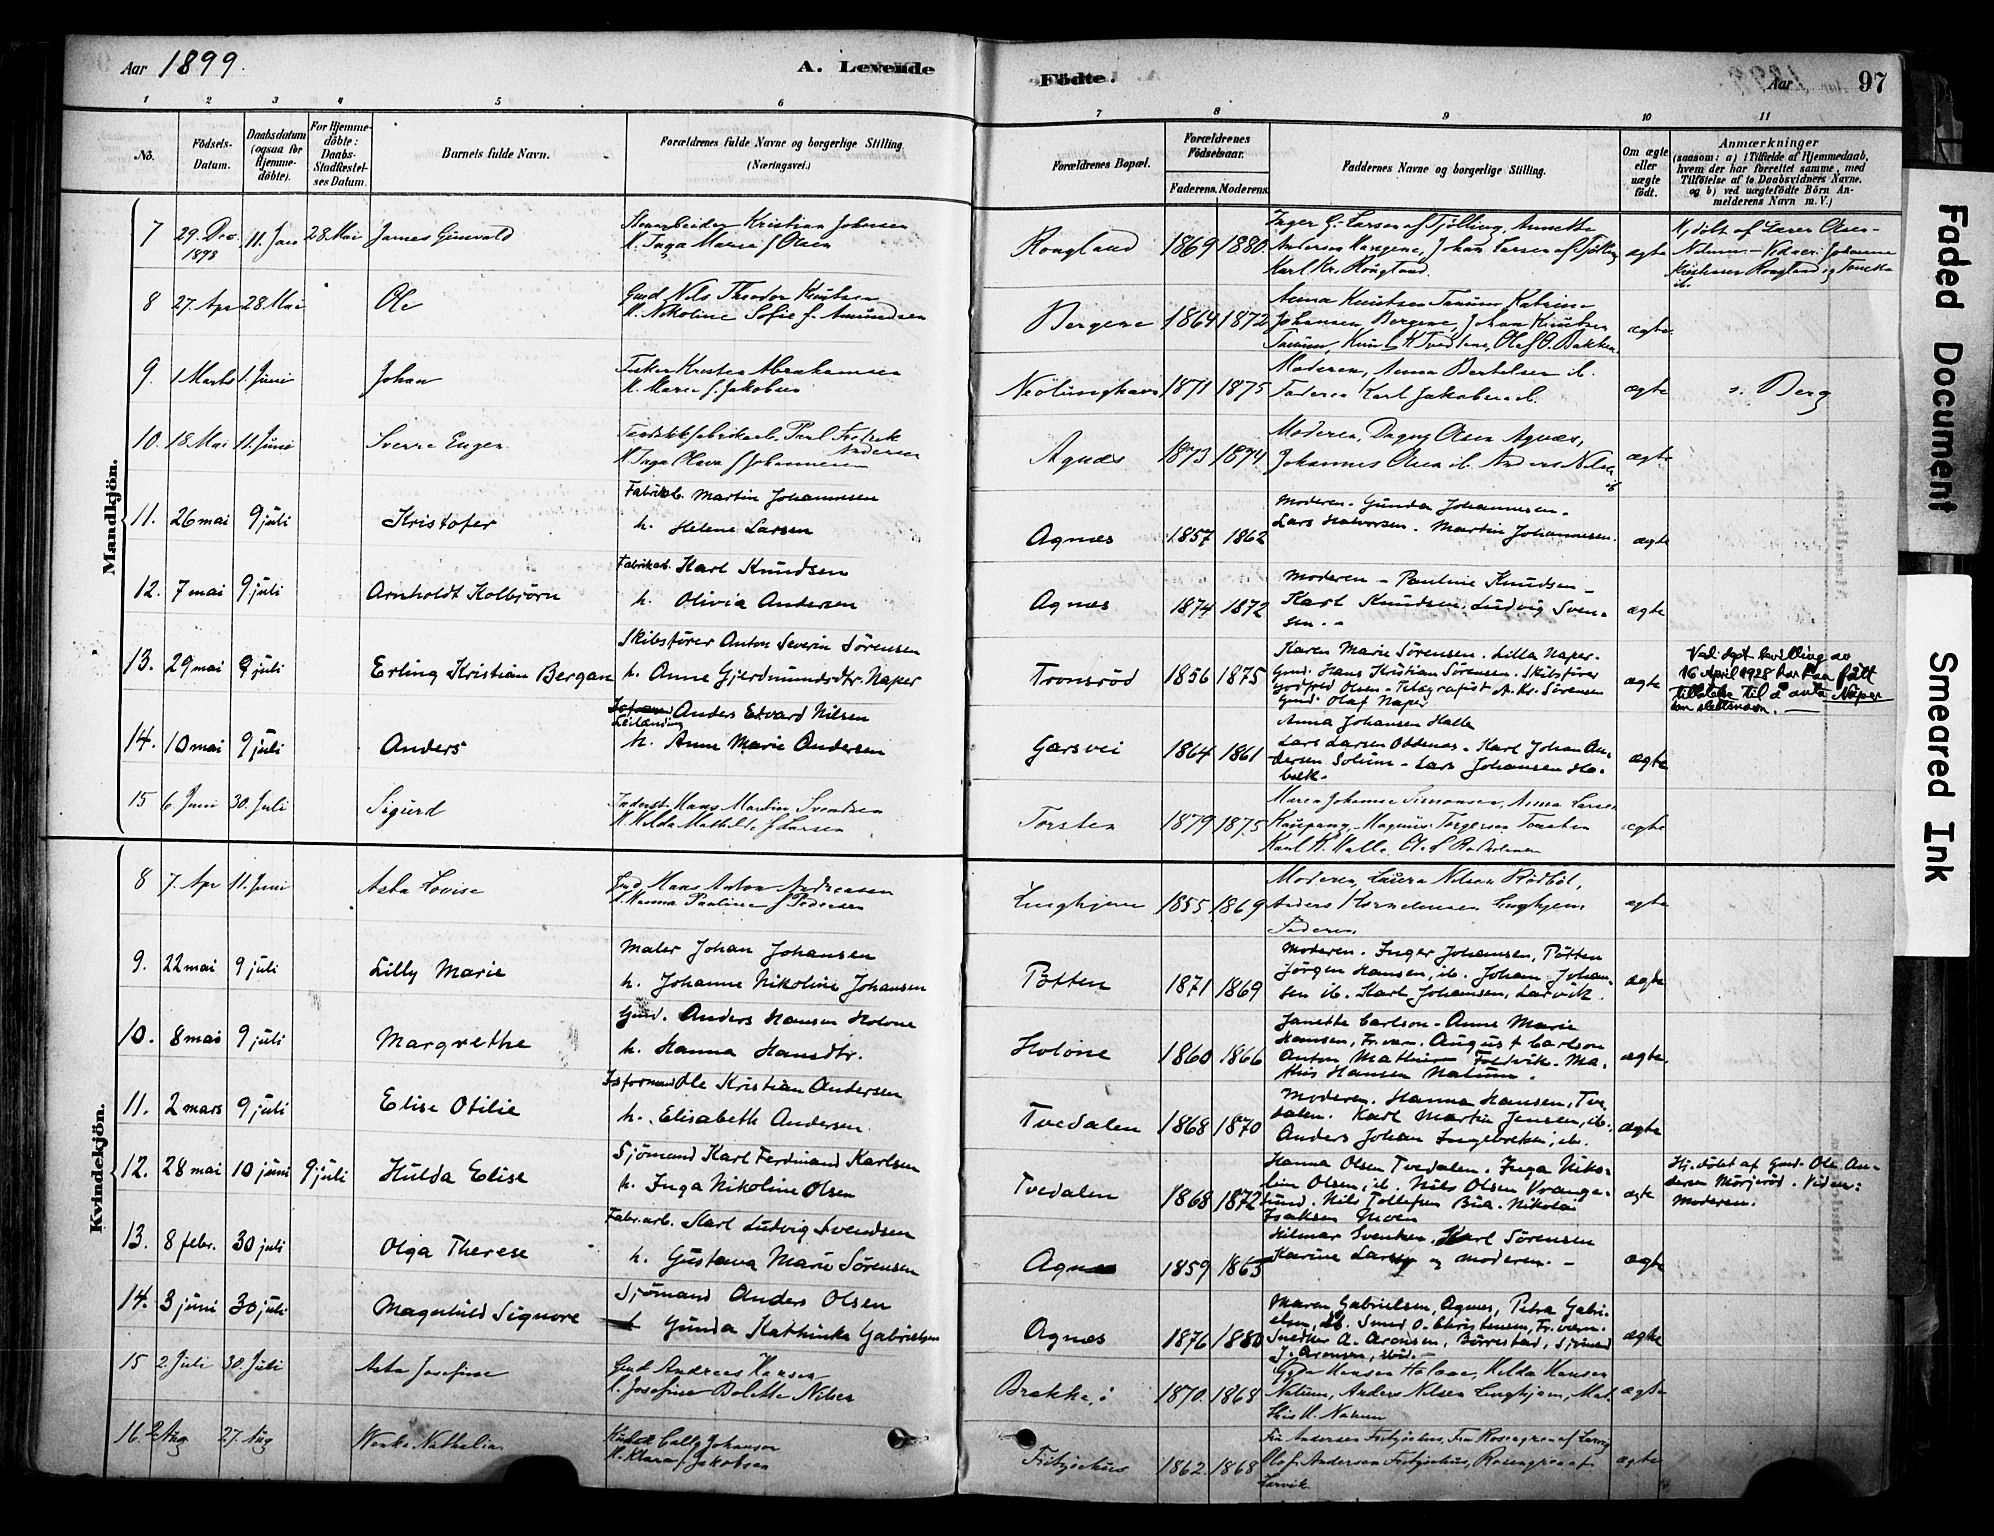 Aar 1899.
A. Levende
Födte.
Aar
97
1 2 3 4 5 6 7 8 9 10 11
No.
Födsels-Datum.
Daabsdatum (ogsaa for Hjemme-döbte).
For Hjemme-döbte: Daabs-Stadfæstel-ses Datum.
Barnets fulde Navn.
Forældrenes fulde Navne og borgerlige Stilling. (Næringsvei.)
Forældrenes Bopæl.
Forældrenes Födselsaar.
Faderens. Moderens.
Faddernes Navne og borgerlige Stilling.
Om ægte eller uægte födt.
Anmærkninger
(saasom: a) i Tilfælde af Hjemmedaab, hvem der har forrettet samme, med Tilföielse af to Daabsvidners Navne, og b) ved uægtefödte Börn An-melderens Navn m. V.)
Mandkjön.
7 29. Dec. 1898 11. Jan 28. Mai
Kristian Johansen
Inga Marie f. Olsen
1869 1880. ægte
8 27. Apr 28 Mai Ole
Gmd Nils Theodor Knutsen
Nikoline Sofie f. Amundsen
Bergene 1864 1872 ægte
9. 1 Marts 1. Juni Johan
H. Maren f. Jakobsen
1871 1875
Moderen, Anna Bertelsen ib.
Faderen Karl Jakobsen ib.
ægte s. Berg
10. 18 Mai 11. Juni Sverre Eugen
Andersen
Agnæs 1873 1874
Moderen, Dagny Olsen Agnæs,
Johannes Olsen ib. Anders Nilsen ib
ægte
11. 26 mai 9 juli Kristofer
Fabrikarb. Martin Johannesen
h. Helene Larsen
Agnæs 1857 1862
Moderen. Gunda Johannesen.
Lars Halvorsen. Martin Johannesen.
ægte
12. 7 mai 9 juli Arnholdt Kolbjörn
Fabrikarb. Karl Knudsen
h. Olivia Andersen
Agnæs 1874 1872
Moderen - Pauline Knudsen -
Karl Knudsen, Ludvig Sven-
sen. -
ægte
13. 29 mai 9 juli Erling Kristian Bergan
Skibsfører Anton Severin Sörensen
h. Anne Gjerdmundsdtr. Naper
Tronsröd 1856 1875
Karen Marie Sörensen. Lilla Naper.
Gmd. Hans Kristian Sörensen. Skibsförer
Godfred Olsen - Telegrafist A. Kr. Sörensen
Gmd. Olaf Naper
ægte
Ved dept. bevilling av
16 April 1928 har han fått
tillatelse til å anta Naper
som slektsnavn.
14. 10 mai 9 juli Anders
Anders Edvard Nilsen
h. Anne Marie Andersen
Garsvei 1864 1861
Anna Johansen Halle
Lars Larsen Oddenæs - Karl Johan An-
dersen Solum - Lars Johansen Ho-
bæk.
ægte
15 6 Juni 30. Juli Sigurd
Inderst Hans Martin Svendsen
H. Hilda Mathilde f Larsen
Torsten 1879 1875
Maren Johanne Simonsen, Anna Larsen
Kaupang, Magnus Torgersen Torsten
ægte
Kvindekjön.
8 7. Apr 11. Juni Asta Lovise
Gmd. Hans Anton Andreasen
H. Hanna Pauline f Pedersen
Linghjem 1855 1869
Moderen, Laura Nilsen Rödböl,
Anders Korneliussen Linghjem
Faderen
ægte
9. 22 mai 9 juli Lilly Marie
Maler Johan Johansen
h. Johanne Nikoline Johansen
Pötten 1871 1869
Moderen. Inger Johansen, Pötten
Jörgen Hansen, ib. Johan Johan-
sen ib. Karl Johansen, Larvik.
ægte
10. 8 mai 9 juli Margrethe
Gmd. Anders Hansen Holone
h. Hanna Hansdtr.
Holone 1860 1866
Janette Carlson - Anne Marie
Hansen, Fr.værn. August Carlson
Anton Mathisen Foldvik. Ma-
this Hansen Nalum.
ægte
11. 2 mars 9 juli Elise Otilie
Ole Kristian Andersen
h. Elisabeth Andersen.
Tvedalen 1868 1870
Moderen. Hanna Hansen, Tve-
dalen. Karl Martin Jensen, ib.
Anders Johan Ingebretsen, ib.
ægte
12. 28 mai 10 juni 9 juli Hulda Elise
Sjömand Karl Ferdinand Karlsen
h. Inga Nikoline Olsen
Tvedalen 1868 1872
Hanna Olsen Tvedalen. Inga Niko-
line Olsen, ib. Nils Olsen Vrange-
sund. Nils Tollefsen Bua. Nikolai
Isaksen Moen
ægte
Hj. döbt af Gmd. Ole An-
dersen Mörjeröd. Vidner:
Moderen.
13. 8 febr. 30 juli Olga Therese
Fabr.arb. Karl Ludvig Svendsen
h. Gustava Marie Sörensen
Agnæs 1859 1863
Hilmar Svendsen. Karl Sörensen
Karine Larsen og moderen. -
ægte
14. 3 juni 30 juli Magnhild Signore
Sjömand Anders Olsen
h Gunda Kathinka Gabrielsen
Agnæs 1876 1880
Maren Gabrielsen, Agnæs, Petra Gabri-
elsen, ib. Smed O. Christensen, Fr.værn.
Snedker A. Aronsen, Börrestad, Sjömand
J. Aronsen, ibid. -
ægte
15 2. Juli 30. Juli Asta Josefine
Gmd Andreas Hansen
H. Josefine Bolette Nilsen
1870. 1868
Hansen Holone, Hilda Hansen
Nalum, Anders Nilsen Linghjem, Mat-
this H. Nalum
ægte
16. 2 Aug 27. Aug Nathalia
Johansen
H. Klara f Jakobsen
1862. 1868
Larvik
ægte
Faded Document
Smeared Ink